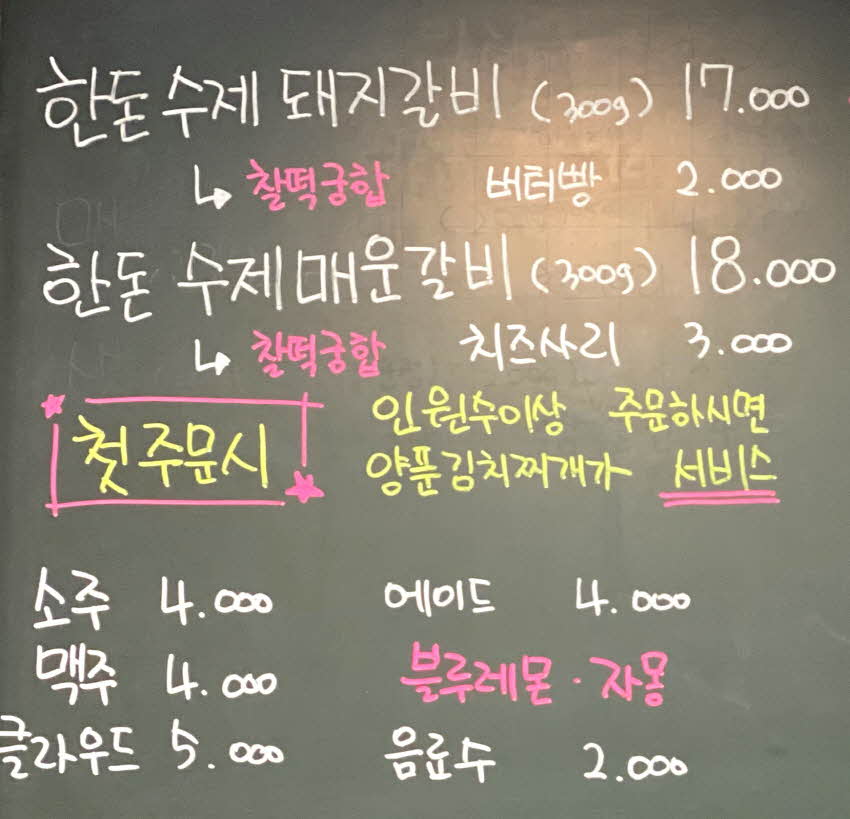 한돈 수제 돼지갈비 (300g) 17.000
↳ 찰떡궁합 버터빵 2.000
한돈 수제 매운갈비 (300g) 18.000
↳ 찰떡궁합 치즈사리 3.000
첫 주문시
인원수이상 주문하시면
양푼김치찌개가 서비스
소주 4.000 에이드 4.000
맥주 4.000 블루레몬 · 자몽
클라우드 5.000 음료수 2.000